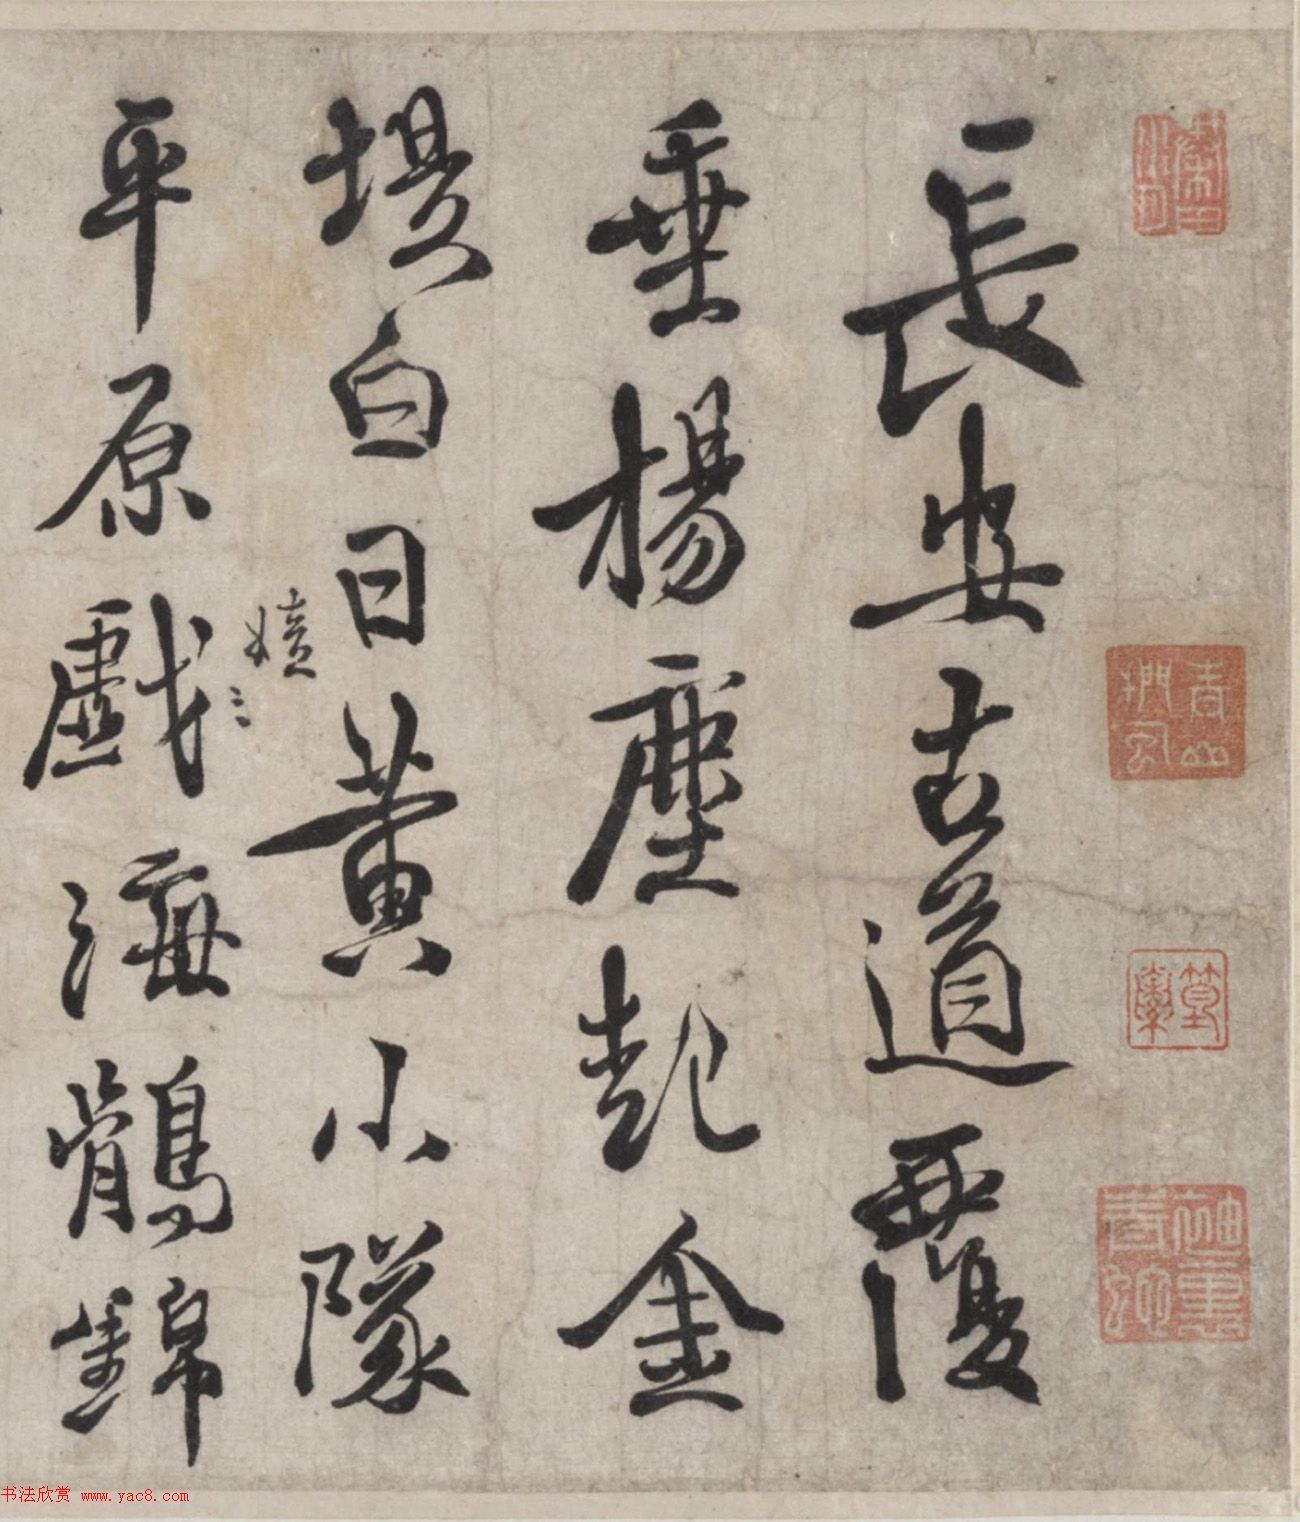 長安古道覆
垂楊塵起金
堤白日黃小隊
嬉
平原戲海鶻錦
书法欣赏 www.yac8.com